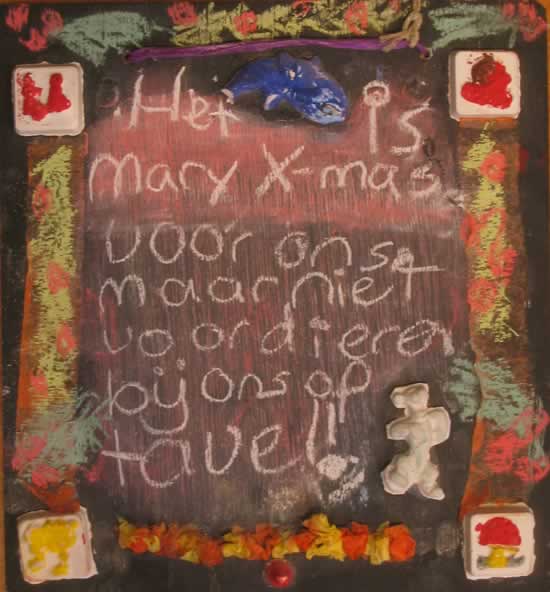 Het is
Mary X-mas
voor onse
maar niet
voor dieren
bij ons op
tavel!